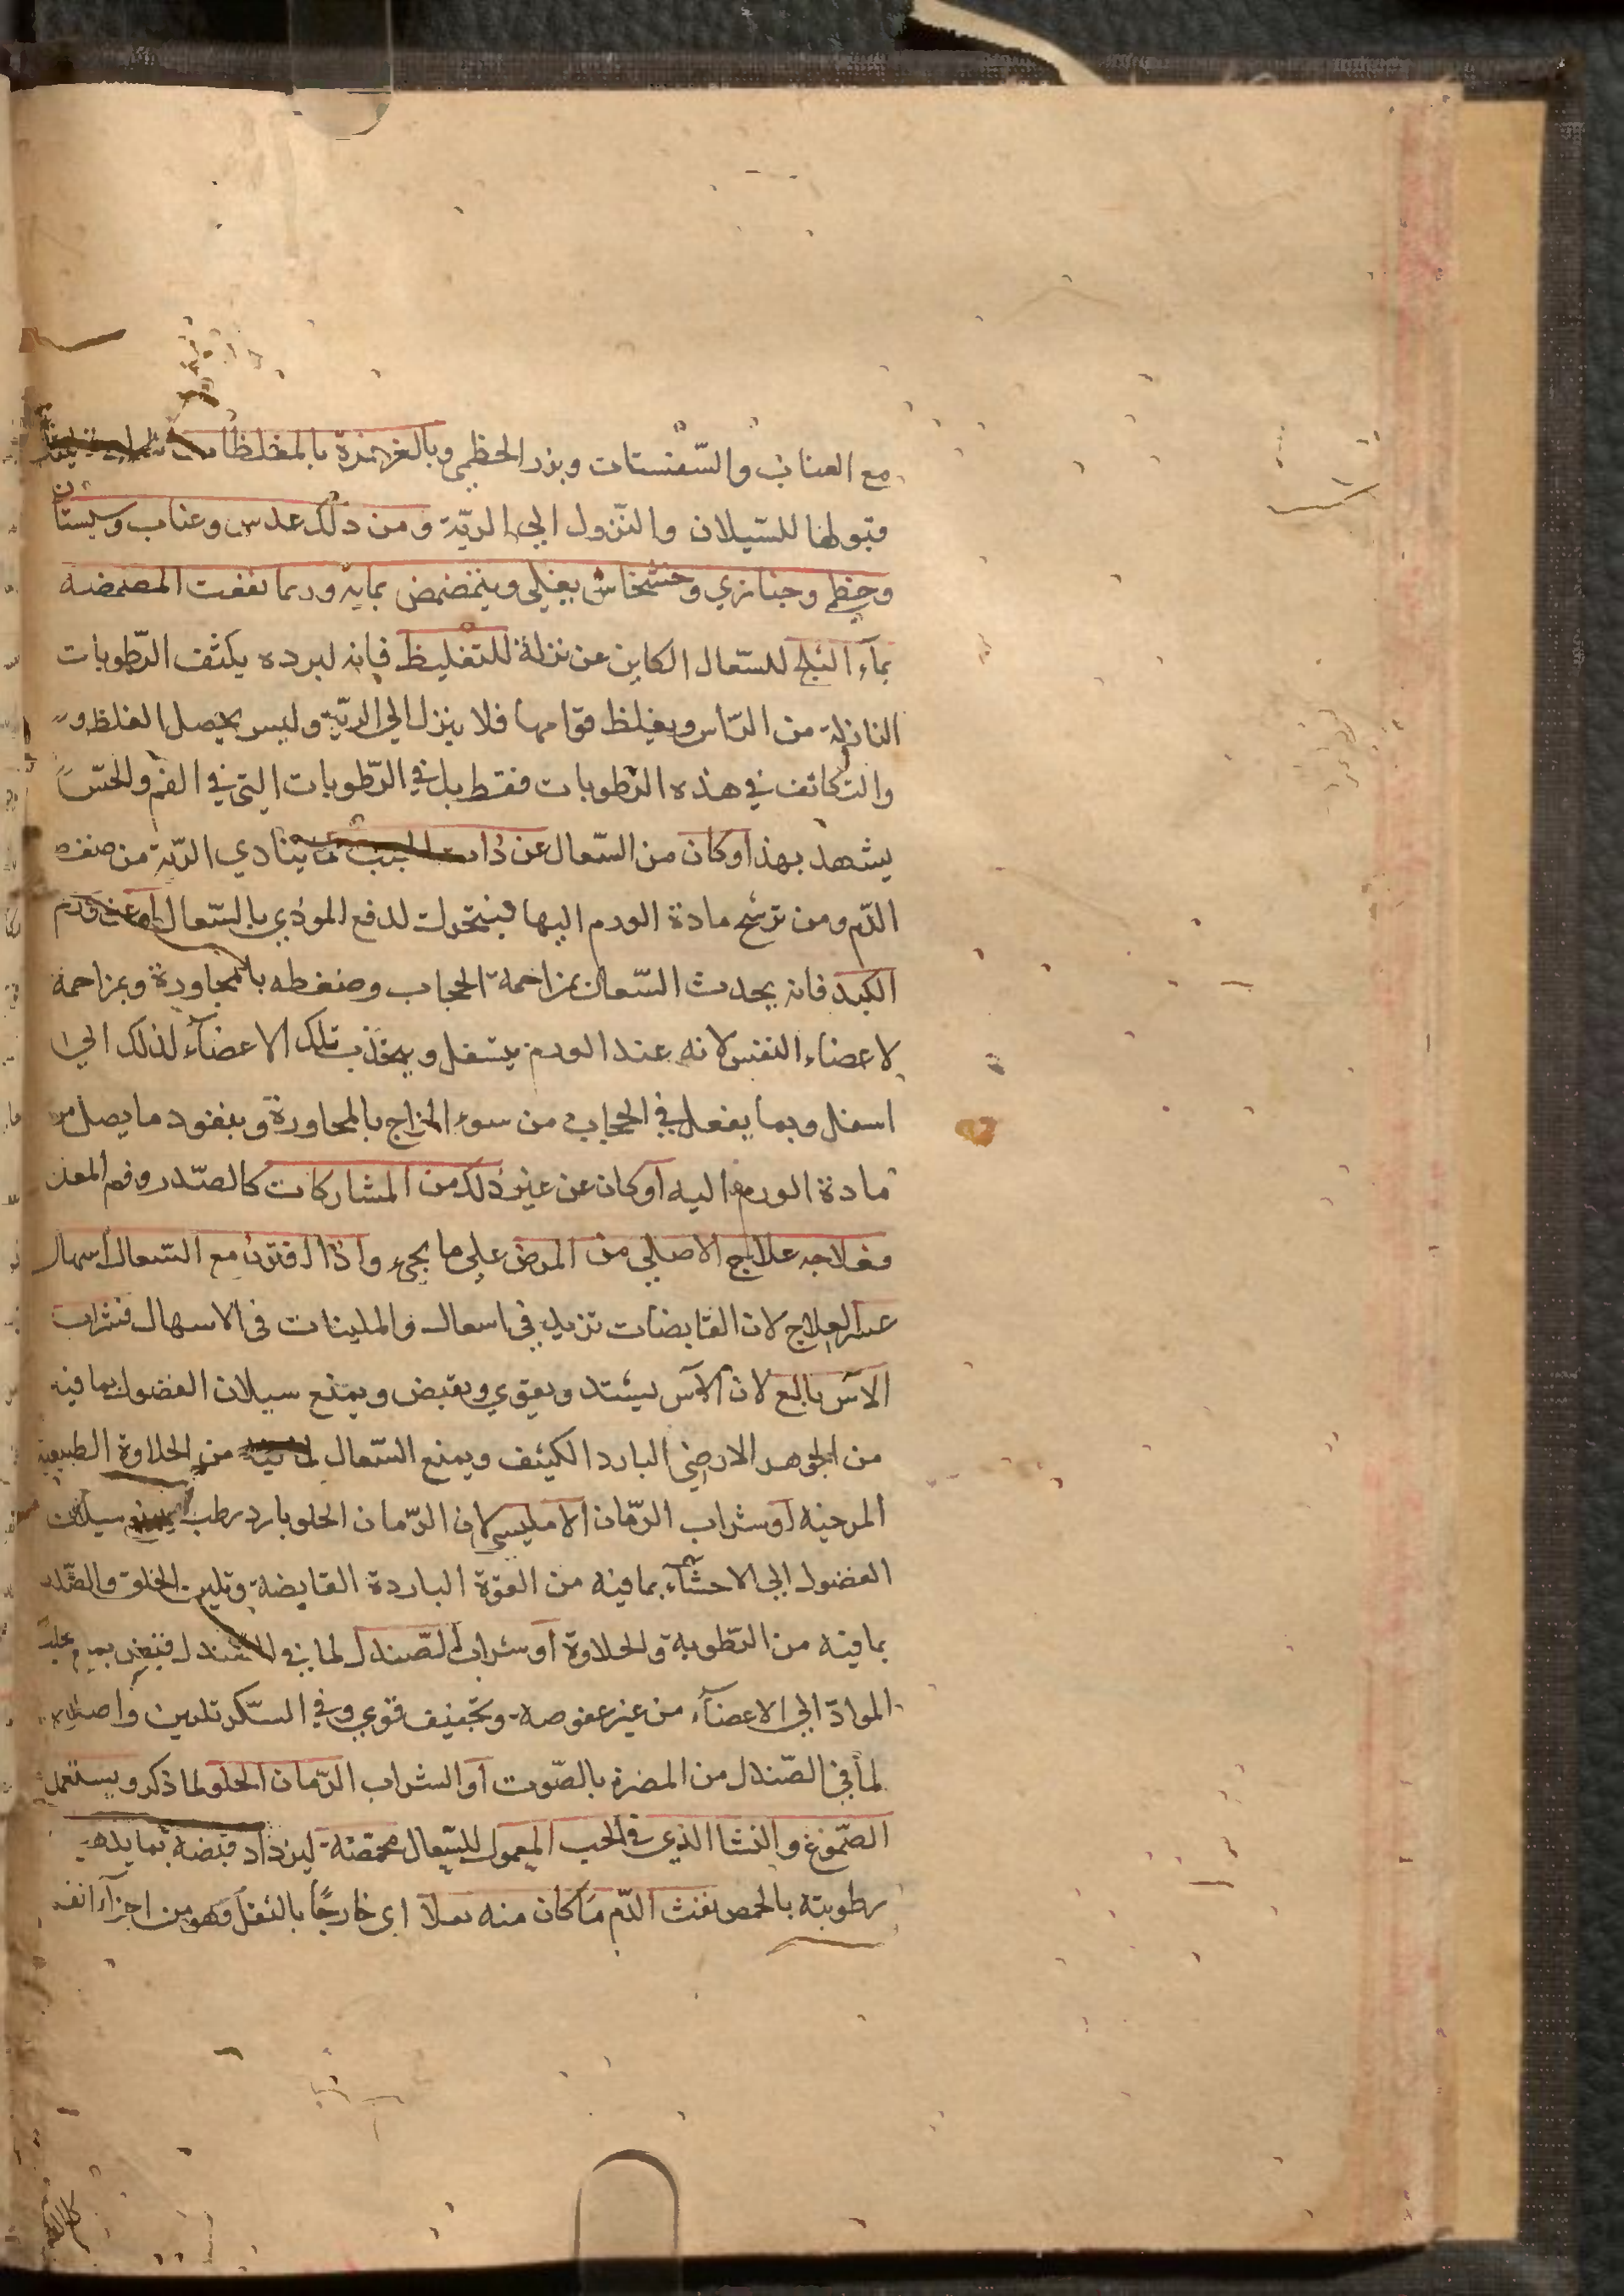 مع العناب والسّفستات وبزر الخطمي وبالغرغرة بالمغلظات
قبولها للسّيلان والنّزول الي الريّة ومن ذلك عدس وعناب وسبستان
وخطمي وخبازي وخشخاش يغلي ويتمضمض بمايه وربما نفعت المضمضه
بمآء الثلج للسّعال الكاين عن نزلة للتغليظ فانه لبرده يكثف الرّطوبات
النازلة من الرّاس ويغلظ قوامها فلا ينزل الي الريّة وليس يحصل الغلظ و
والتكاثف في هذه الرّطوبات فقط بل في الرّطوبات التي في الفم والحسّ
يشهد بهذا وكان من السّعال عن ذات الجنب يتادي الريّة من ضغط
الدّم ومن ترشح مادة الورم اليها فيتحرك لدفع الموذي بالسّعال او عن ورم
الكبد فانه يحدث السّعال بمزاحمة الحجاب وضغطه بالمجاورة وبمزاحمة
لاعضاء النفس لانه عند الورم يتسفل ويجذب تلك الاعضآء لذلك الي
اسفل وبما يفعل في الحجاب من سوء المزاج بالمجاورة وبنفوذ ما يصل من
مادة الورم اليه او كان عن غير ذلك من المشاركات كالصّدر وفم المعدة
فعلاجه علاج الاصلي من المرض علي ما يجيء واذا اقترن مع السّعال اسهال
عسر العلاج لان القابضات تزيد في اسعال والملينات في الاسهال فشراب
الآس بالع لان الآس يشتد ويقوي ويقبض ويمنع سيلان الفضول بما فيه
من الجوهر الارضي البارد الكثيف ويمنع السّعال لما فيه من الحلاوة الطبيعية
المرخية او شراب الرّمان الامليسي لان الرّمان الحلو بارد رطب يمنع سيلان
الفضول الي الاحشآء بما فيه من القوة الباردة القابضة وتليين الحلق والصّدر
بما فيه من الرّطوبة والحلاوة او شراب الصّندل لما في الصندل
المواد الي الاعضآء من غير عفوصة وتجفيف قوي وفي السّكر تليين واصلاح
لما في الصّندل من المضرة بالصّوت او الشراب الرّمان الحلو لما ذكر ويستعمل
الصّموغ والنشا الذي في الحب المعمول للسّعال محمصة ليزداد قبضه بما يذهب
رطوبته بالحمص نفث الدّم ما كان منه تفلا اي خارجًا بالتفل فهو من اجزآء الفم